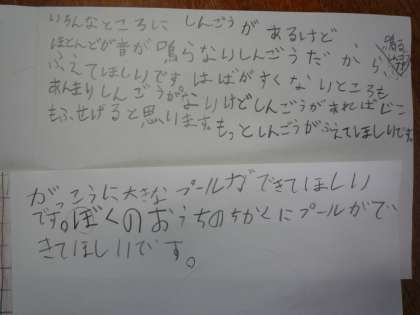 いろんなところに しんごうが あるけど
ほとんどが音が鳴らないしんごうだから、
ふえてほしいです はばがすくないところも
あんまりしんごうがないけどしんごうがあればじこ
もふせげると思います。もっとしんごうがふえてほしいです。
がっこうに大きなプールができてほしい
です。ぼくのおうちのちかくにプールがで
きてほしいです。